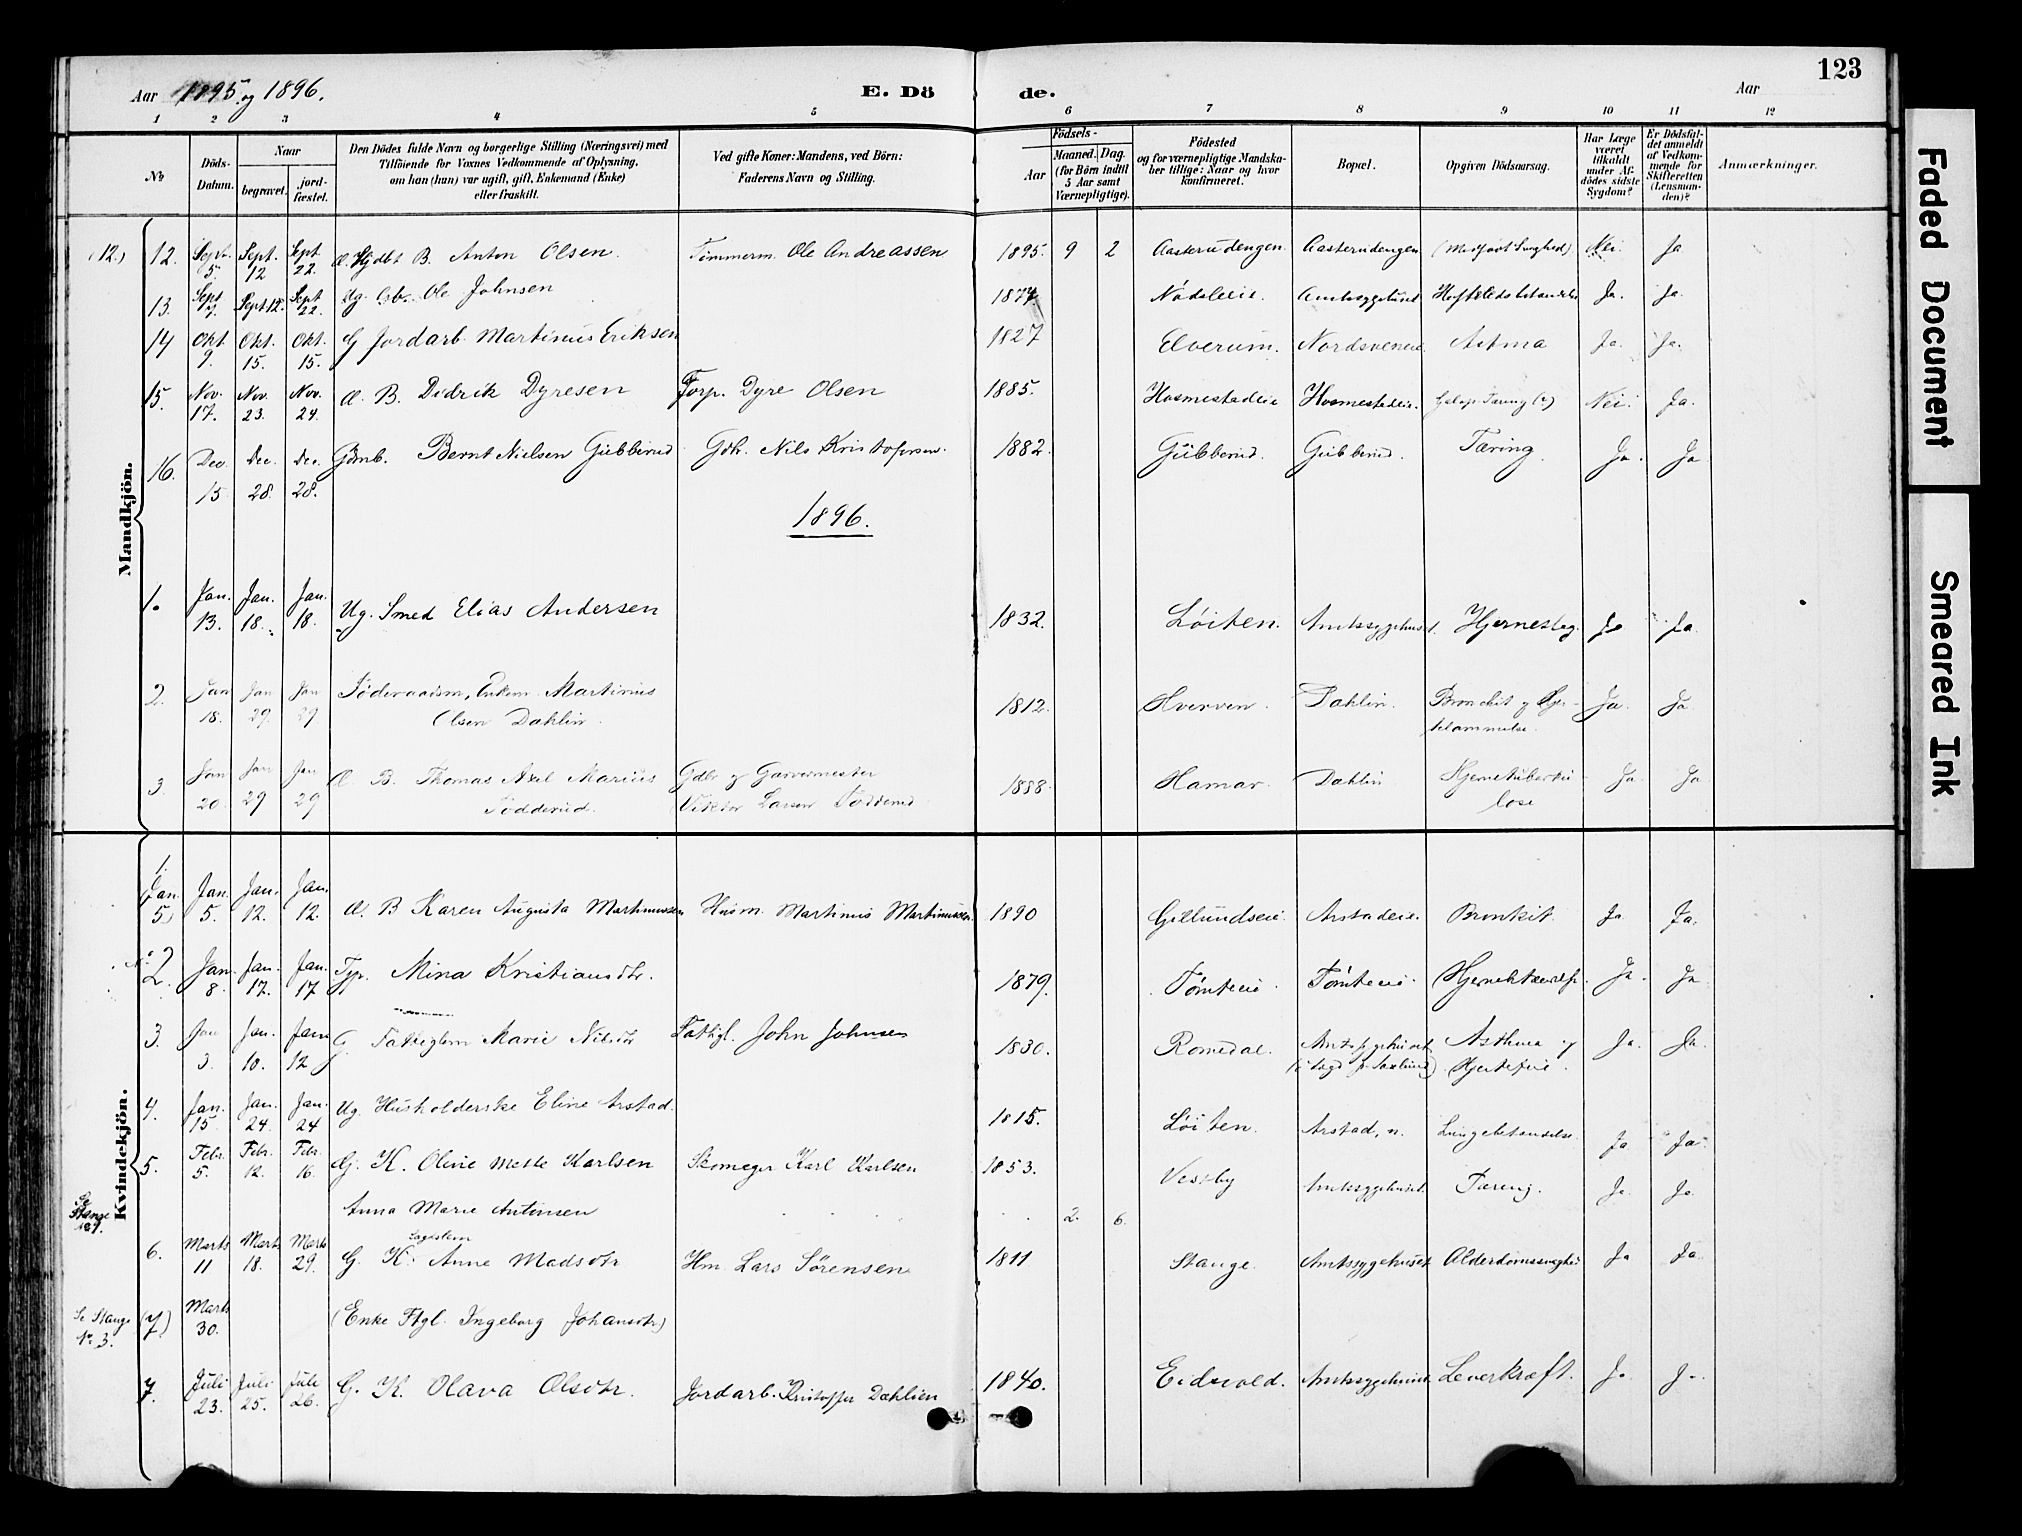 Aar 1895 og 1896.
E. Dö
de.
Aar
123
1 2 3 4 5 6 7 8 9 10 11 12
No
Döds-Datum.
Naar
begravet.
jord-fæstet.
Den Dödes fulde Navn og borgerlige Stilling (Næringsvei) med
Tilföiende for Voxnes Vedkommende af Oplysning,
om han (hun) var ugift, gift, Enkemand (Enke)
eller fraskilt.
Ved gifte Koner: Mandens, ved Börn:
Faderens Navn og Stilling.
Födsels-
Aar
Maaned. Dag.
(for Börn indtil
5 Aar samt
Værnepligtige).
Födested
og for værnepligtige Mandska-
ber tillige: Naar og hvor
konfirmeret.
Bopæl.
Opgiven Dödsaarsag.
Har Læge
været
tilkaldt
under Af-
dödes sidste
Sygdom?
Er Dödsfal-
det anmeldt
af Vedkom-
mende for
Skifteretten
(Lensman-
den)?
Anmærkninger.
Mandkjön.
(12.) 12. Sept. 5. Sept. 12 Sept. 22. Æ. B. Anton Olsen. Tømmerm. Ole Andreassen 1895. 9 2 Aasterudengen. Aasterudengen (Medfødt Svaghed) Nei. Ja
13. Sept. 7. Sept 12. Sept. 22. Ug. Ole Johnsen 1874. Amtssygehuset Ja. Ja.
14 Okt. 9. Okt. 15. Okt. 15. G Jordarb. Martinus Eriksen 1827 Elverum. Astma Ja. Ja.
15. Nov. 17. Nov. 23. Nov. 24. Æ. B. Didrik Dyresen Forp. Dyre Olsen 1885. Hosmestadeie Hosmestadeie. Galop. Tæring (?) Nei. Ja.
16. Dec. 15. Dec. 28. Dec. 28. Bernt Nielsen Gubberud Gdbr. Nils Kristofersen. 1882. Gubberud. Gubberud. Tæring Ja. Ja
1896.
1. Jan. 13. Jan. 18. Jan. 18. Ug. Smed Elias Andersen 1832. Løiten. Amtssygehuset. Hjerneslag. Ja Ja
2. Jan 18. Jan 29. Jan 29 Føderaadsm, Enkem. Martinus 1812. Hverven. Dahlin. Bronchit og Ja. Ja
Olsen Dahlin.
3. Jan 20. Jan 29 Jan 29 Æ B. Thomas Axel Marius Gdbr og Garvermester 1888. Hamar. Dahlin Hjernetuberku Ja. Ja
Tødderud. Viktor Larsen Tødderud lose
Kvindekjön.
1. (Jan. 5.) Jan. 5. Jan. 12. Jan. 12. Æ. B Karen Augusta Martinussen Husm. Martinus Martinussen. 1890 Gillundseie. Arstadeie. Bronkit. Ja Ja.
No 2 Jan. 8. Jan. 17. Jan. 17 Typ. Mina Kristiansdtr. 1879. Tømteeie. Tømteeie. Ja. Ja
3. Jan 3. Jan. 10. Jan. 12 G. Fattiglem Marie Nilsdtr Fattigl. John Johnsen 1830. Romedal. Amtssygehuset Asthma og Ja. Ja.
Hjertefeil.
4. Jan. 15 Jan. 24. Jan. 24 Ug. Husholderske Eline Arstad. 1815. Løiten. Arstad, n. Lungebetændelse. Ja Ja
5. Febr. 5. Febr. 12. Febr. 16. G. K. Oline Mette Karlsen Skomager Karl Karlsen 1853. Vestby Amtssygehuset. Tæring. Ja. Ja
Se Stange Anna Marie Antonsen 2. 6.
6. Marts 11 Marts 18. Marts 29. G. K. Anne Madsdtr Hm. Lars Sørensen 1811 Stange. Amtssygehuset Alderdomssvaghed Ja Ja.
Se Stange No. 3. (7) Marts 30. (Enke Ftgl. Ingeborg Johansdtr.)
7. Juli 23. Juli 25. Juli 26. G. K. Olava Olsdtr. Jordarb. Kristoffer Dahlien 1840. Eidsvold. Amtssygehuset Leverkræft. Ja J
Faded Document
Smeared Ink